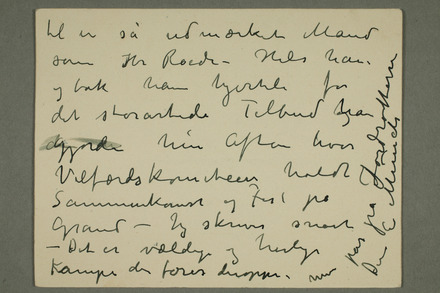 til en så udmærket Mand
som Hr Roede – Hils ham
og tak ham hjertelig for
det storartede Tilbud han
gjorde hin Aften hvor
Velfærdskomiteen holdt
Sammenkomst og Fest på
Grand – Jeg skriver snart
– Det er vældige og herlige
Kampe der føres deroppe.
pas på Jordrotterne
Din E Munch